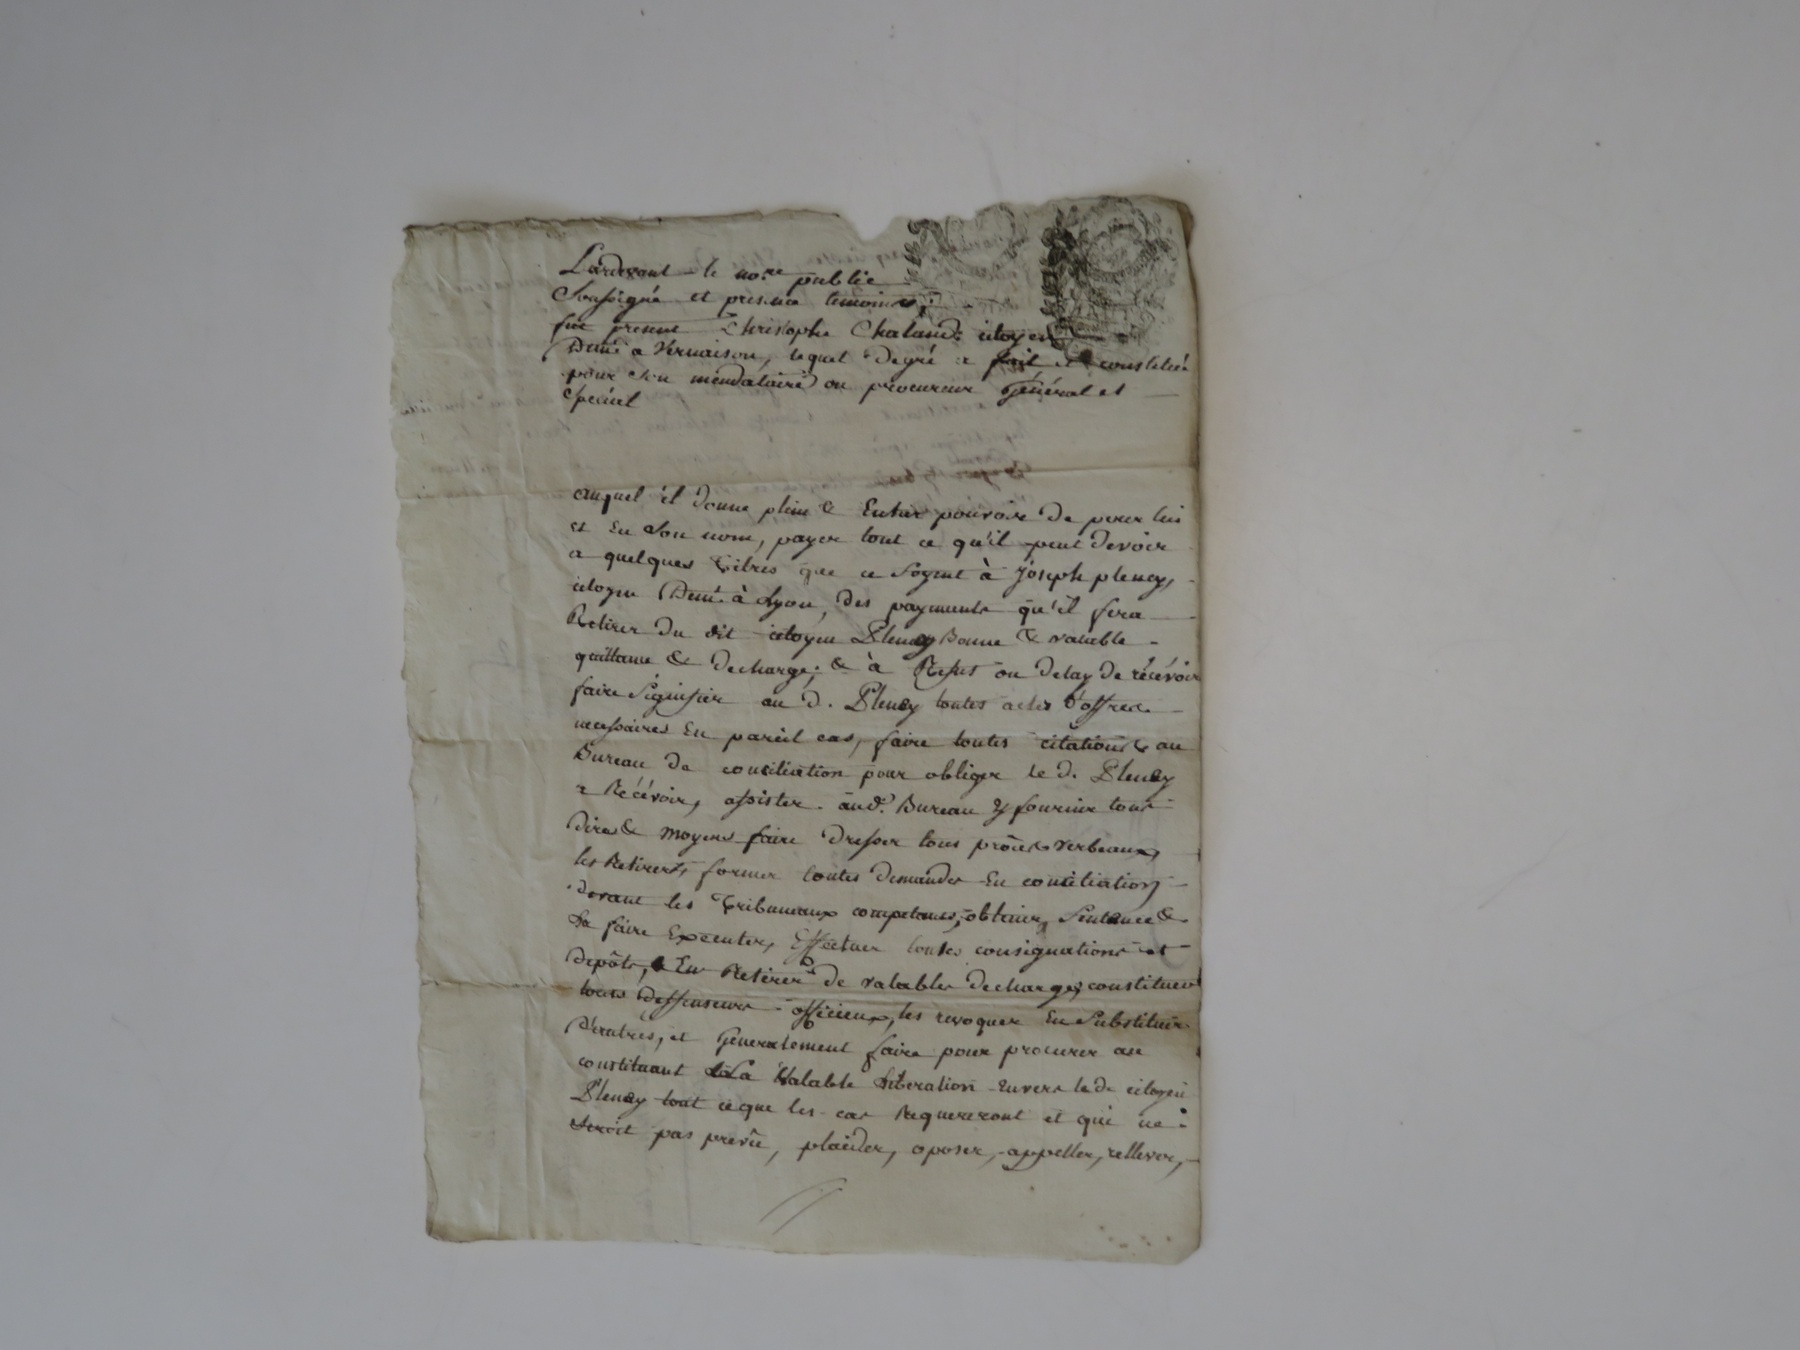 Pardevant le no.re public
Soussigné et presence temoins,
fut present Christophe Chaland citoyen
Demt a Vernaison, lequel de gré a fait et constitué
pour son mendataire ou procureur Général et
Special
auquel il donne plein & Entier pouvoir De pour lui
et En son nom, payer tout ce qu'il peut Devoir
a quelques Titres que ce soyent à Joseph pleney,
citoyen Demt. à Lyon, Des payments qu'il fera
Retirer Du dit citoyen Pleney Bonne & valable
quittance & decharge; & à Refus ou Delay De récévoir
faire Signifier au d. Pleney toutes actes d'offres
necessaires En pareil cas, faire toutes citations au
Bureau De conciliation pour obliger le d. Pleney
a Récévoir, assister aud. Bureau y fournir tous
Dires & moyens faire Dresser tous procès verbeaux,
les Retirers, former toutes Demandes En conciliation
devant les Tribuneaux competants, obtenir, Sentence &
La faire Executer, Effectuer toutes consignations et
Depôts, En Retirer De valables Decharges, constituer
tous Deffenseurs officieux, les revoquer En Substituer
D'autres, et Généralement faire pour procurer au
constituant La Valable Liberation Envers le d. citoyen
Pleney tout ce que les cas Requereront et qui ne
Seroit pas prevû, plaider, oposer, appeller, rellever,